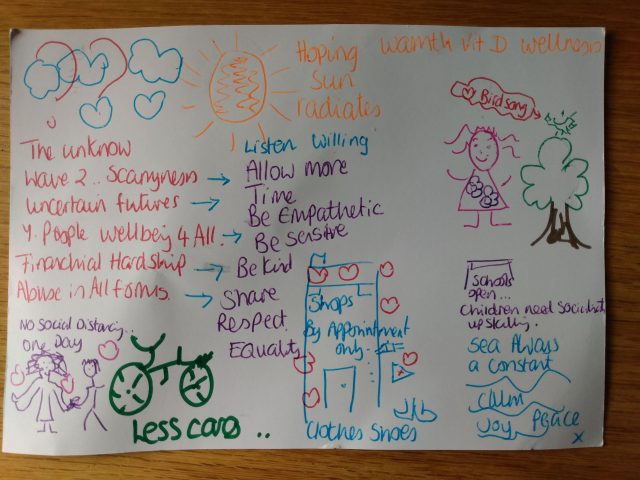 Hoping
sun
radiates
Warmth Vit D wellness
Birdsong
The unknow
Wave 2.. Scaryness
Uncertain futures
Y. People wellbeing 4 All.
Financhial Hardship
Abuse in All forms.
Listen willing
Allow more
Time
Be Empathetic
Be Sensitive
Be kind
Share
Respect
Equality
No Social Distancing..
One Day
Less cars ..
Shops
By Appointment
only
Clothes Shoes
Schools
open...
Children need Social
upskilling.
Sea Always
a constant
Calm
Joy Peace
x